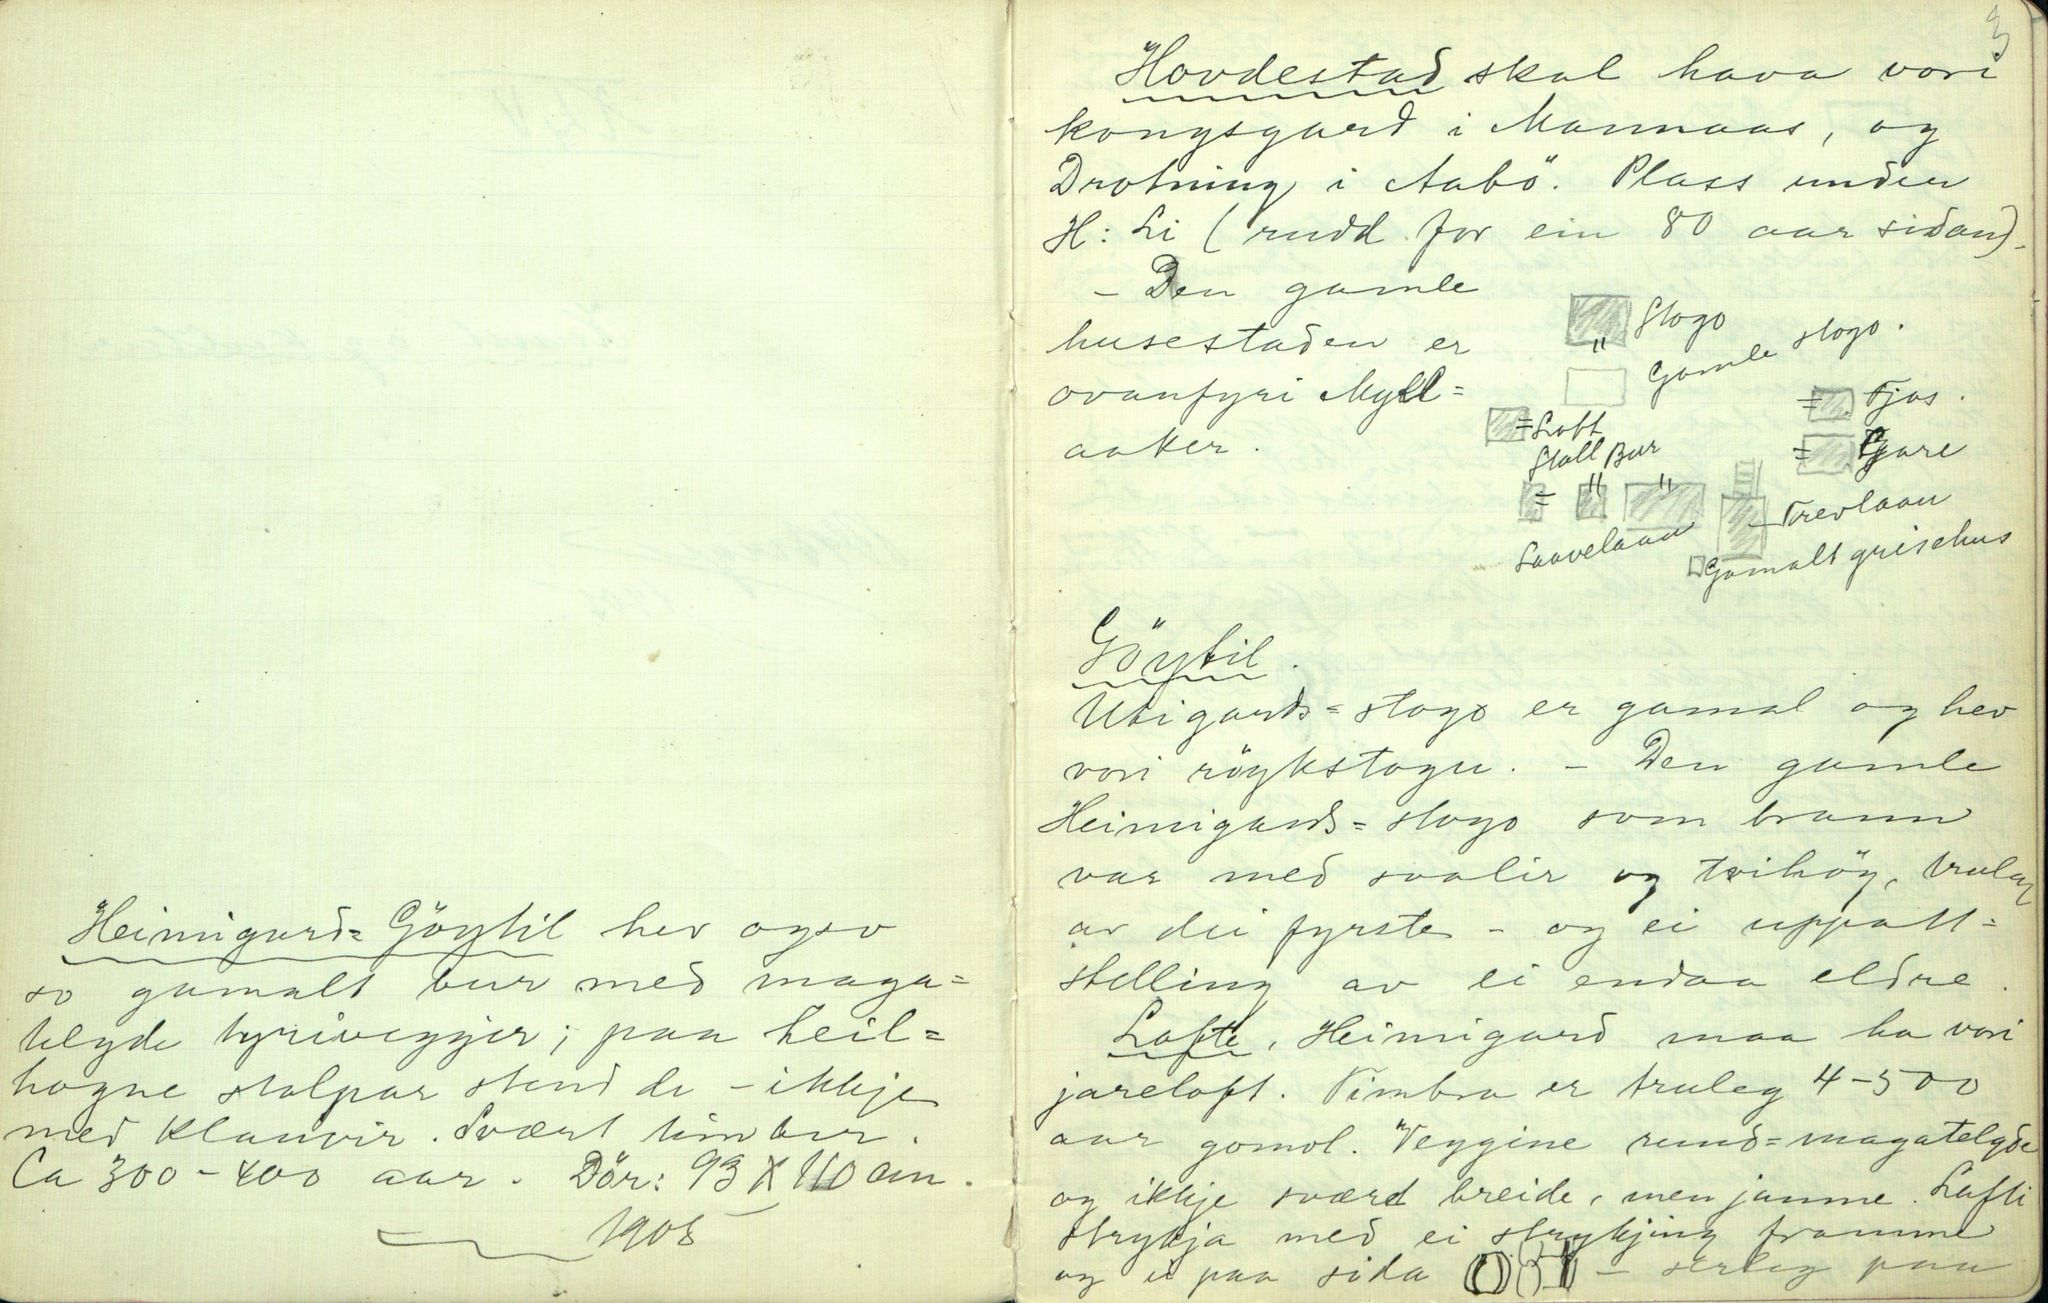 Heimigard= Göytil hev ogso
so gamalt bur med maga=
telgde tyrivegger; paa heil=
hogne stolpar stend de – ikkje
med klauvir. Svært timber.
Ca 300–400 aar. Dör: 93 X 110 cm.
1908
3
Hovdestad skal hava vori
kongsgard i Mannaas, og
Drotning i Aabö. Plass under
H: Li (rudd for ein 80 aar sidan)–
– Den gamle
husestaden er
ovanfyri Myll=
aaker.
Stogo
Gamle stogo.
Fjos.
=Loft
Stall Bur
Gare
Trevlaan
Laavelaan
Gamalt grisehus
Göytil.
Utigards=stogo er gamal og hev
vori röykstogu. – Den gamle
Heimigards=stogo som brann
var med svalir og tvihög, truleg
av dei fyrste – og ei uppatt=
stelling av ei endaa eldre.
Lofte, Heimigard maa ha vori
jareloft. Timbra er truleg 4–500
aar gomol. Veggine rund=magatelgde
og ikkje sværd breide, men jamne. Lafti
strykja med ei strykjing framme
og ei paa sida – serleg paa